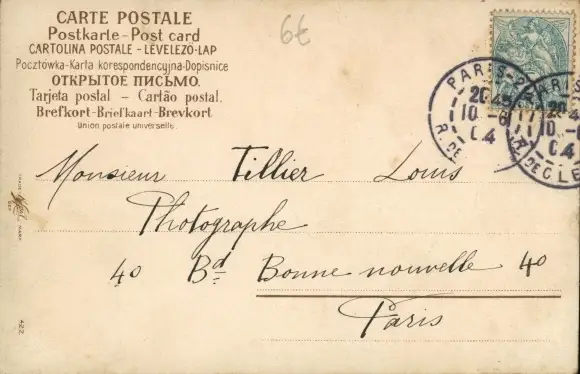 6€
CARTE POSTALE
Postkarte - Post card
CARTOLINA POSTALE - LEVELEZŐ-LAP
Pocztówka-Karta korespondencyjna-Dopisnice
ОТКРЫТОЕ ПИСЬМО.
Tarjeta postal - Cartão postal.
Brefkort-Briefkaart-Brevkort
Union postale universelle.
PARIS
20 45
10 - 6
04
R. DE
PARIS
20 4
10 -
04
R. DE CLE
Monsieur Tillier Louis
Photographe
40 Bd Bonne nouvelle 40
Paris
TRADE MARK
422